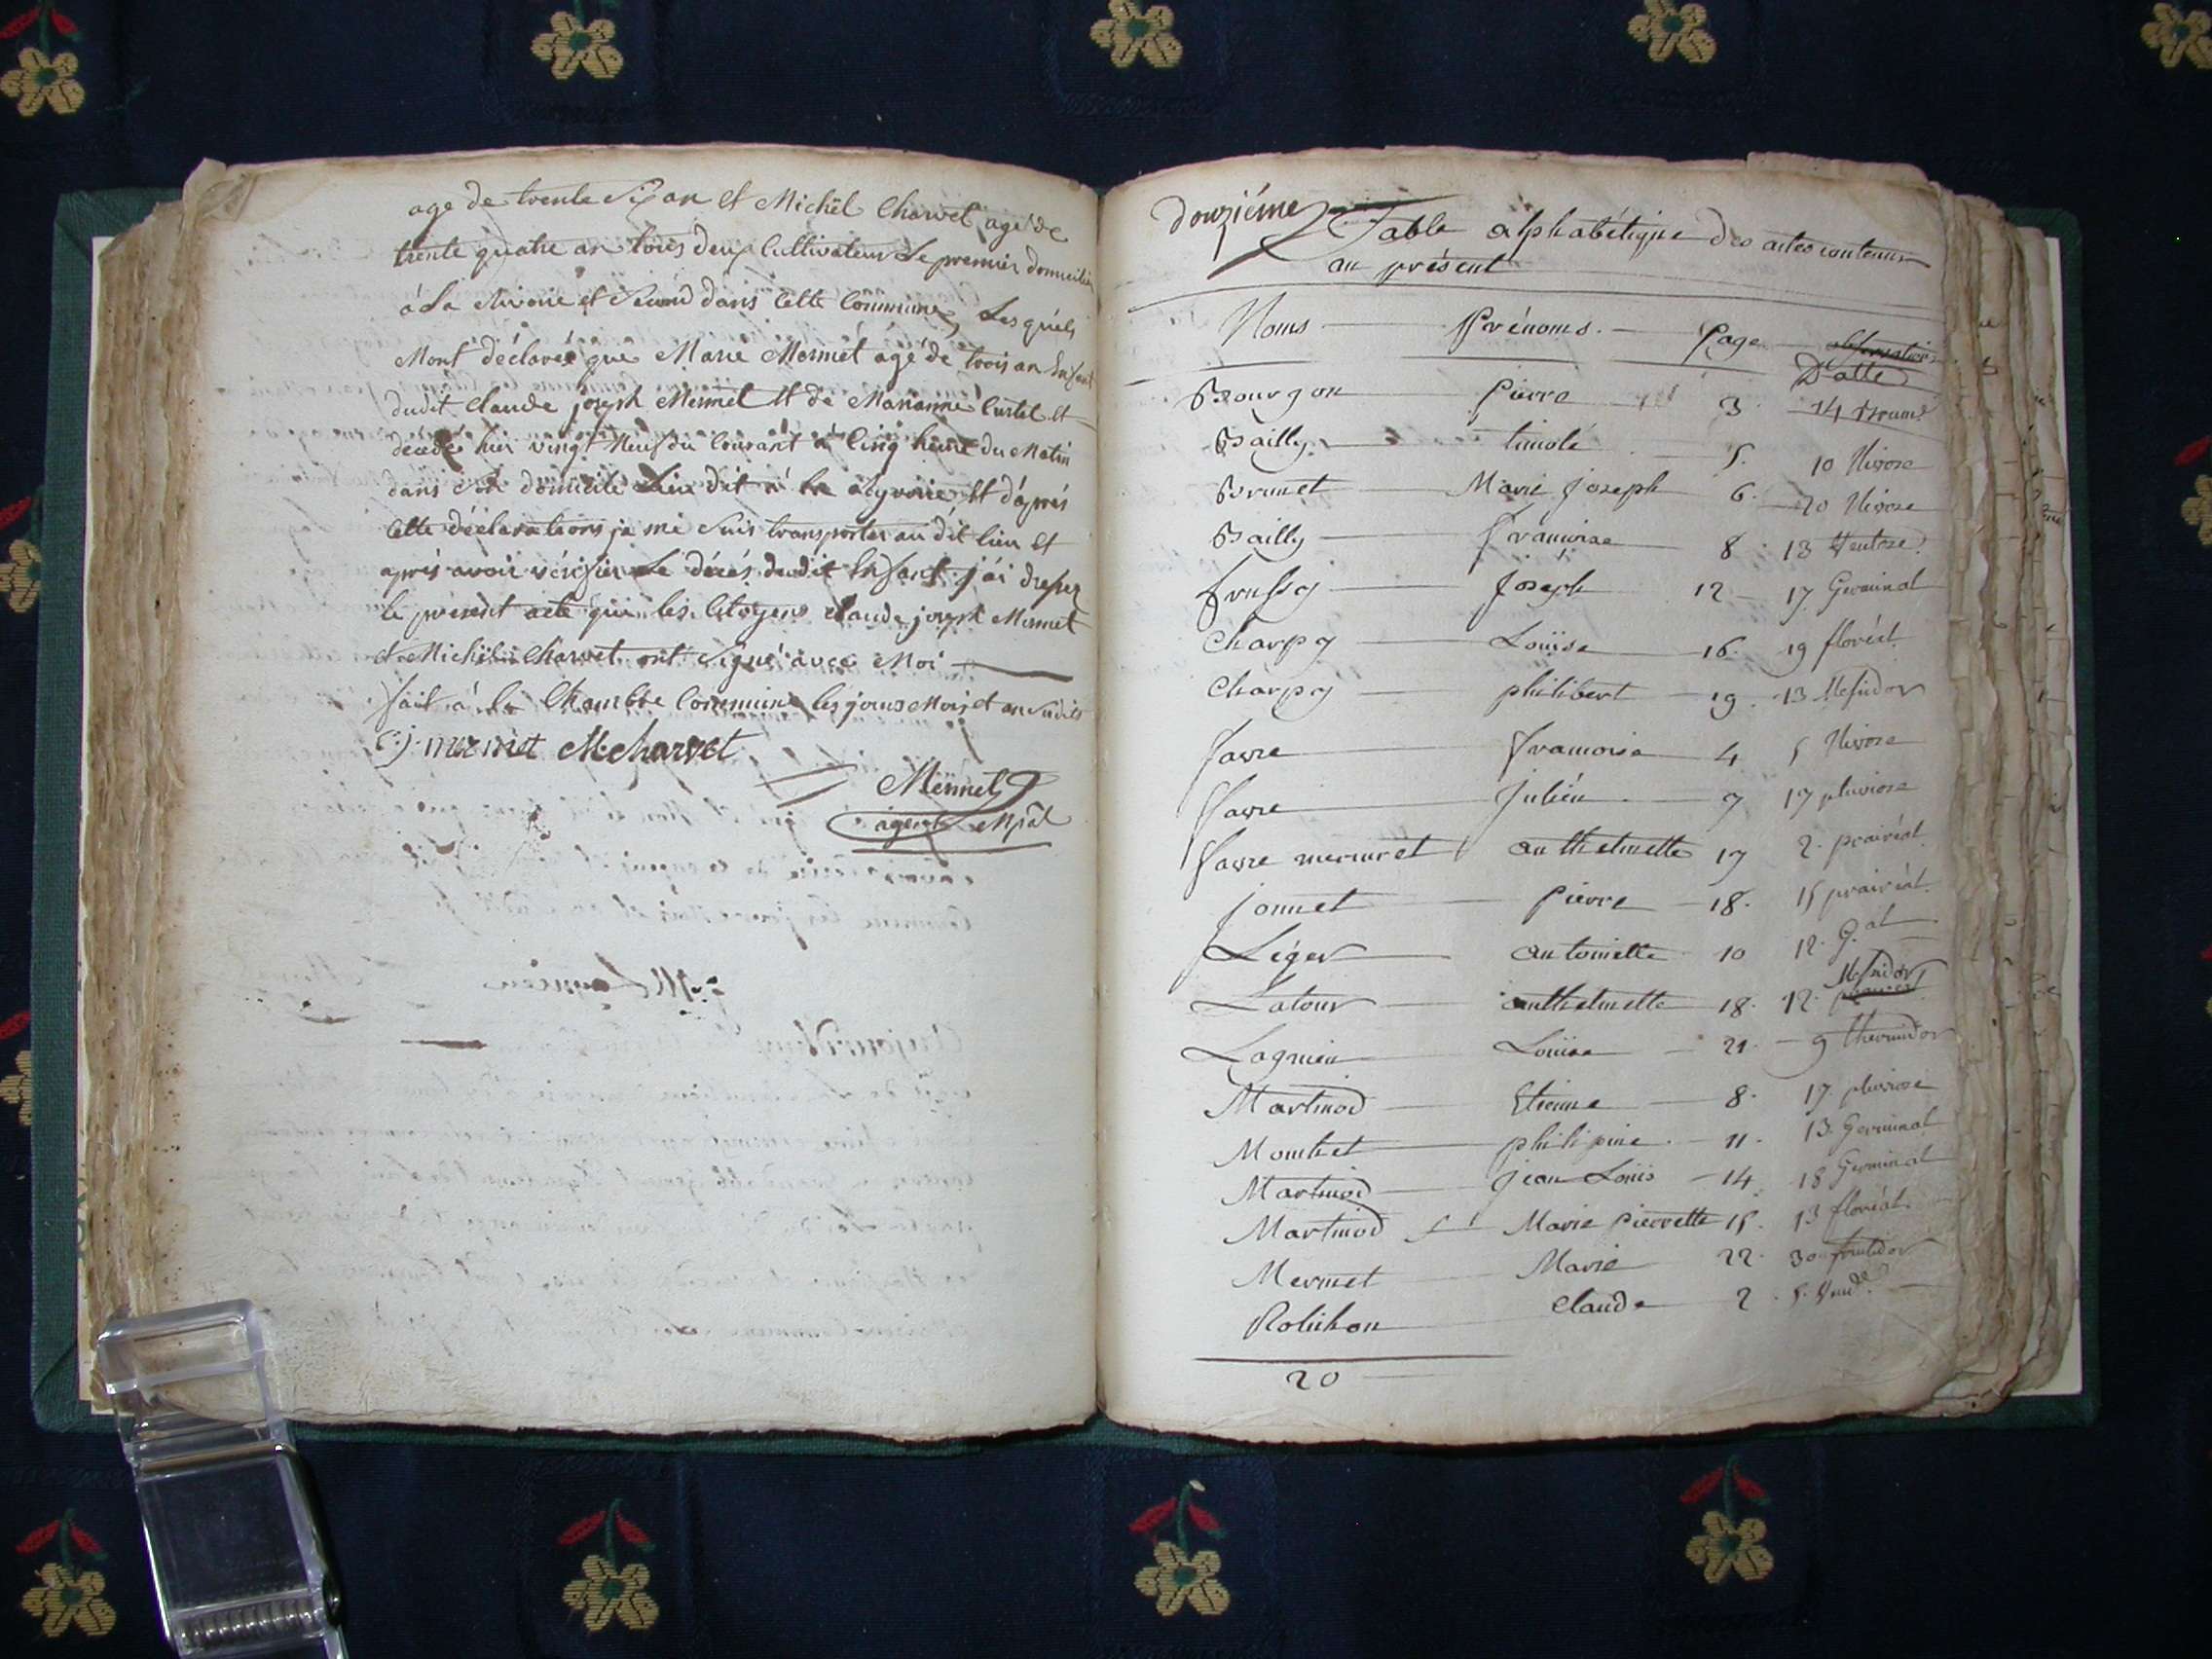 age de trente Six an et Michel Charvet agé de
trente quatre an tous deux Cultivateur Le premier domicilié
à La et Second dans Cette Commune, Lesquels
Mont déclarée que Marie Mermet agé de trois an Enfant
dudit Claude joseph Mermet et de Marianne Curtet et
décédé hier vingt Neuf du Courant à Cinq heure du Matin
dans Son domicile Lieu dit à la et d'après
Cette déclarations je me suis transporter au dit lieu et
après avoir vérifier Le décés dudit Enfant j'ai dresser
le present acte que les Citoyens Claude joseph Mermet
et Michel Charvet ont Signé avec Moi
fait à la Chambre Commune les jours Mois et an Sudits
C. j. mermet M. charvet
Mermet
agent Mpal
douzième Table alphabétique des actes contenus
au présent
Noms Prénoms. Page observations
Datte
Bourgon Pierre 3 14 Brum.
Bailly timolé 5. 10 Nivose
Brunet Marie Joseph 6. 20 Nivose
Bailly Francoise 8. 13 Ventose
Joseph 12 17 Germinal
Charpy Louise 16. 19 floréal
Charpy philibert 19. 13 Messidor
favre francoise 4 5 Nivose
favre Julién 7 17 pluviose
favre mermet anthelmette 17 2. prairéal
jonnet pierre 18. 15 prairéal
Léger antoinette 10 12. G.al
Messidor
Latour anthelmette 18. 12.
Lagnieu Louise 21. 9 thermidor
Martinod Etienne 8. 17. pluviose
Mombet philipine 11. 13. Germinal
Martinod jean Louis 14. 18 Germinal
Martinod Marie pierrette 15. 13 floréal
Mermet Marie 22. 30 fructidor
Robichon Claude 2. 5. Vend.
20